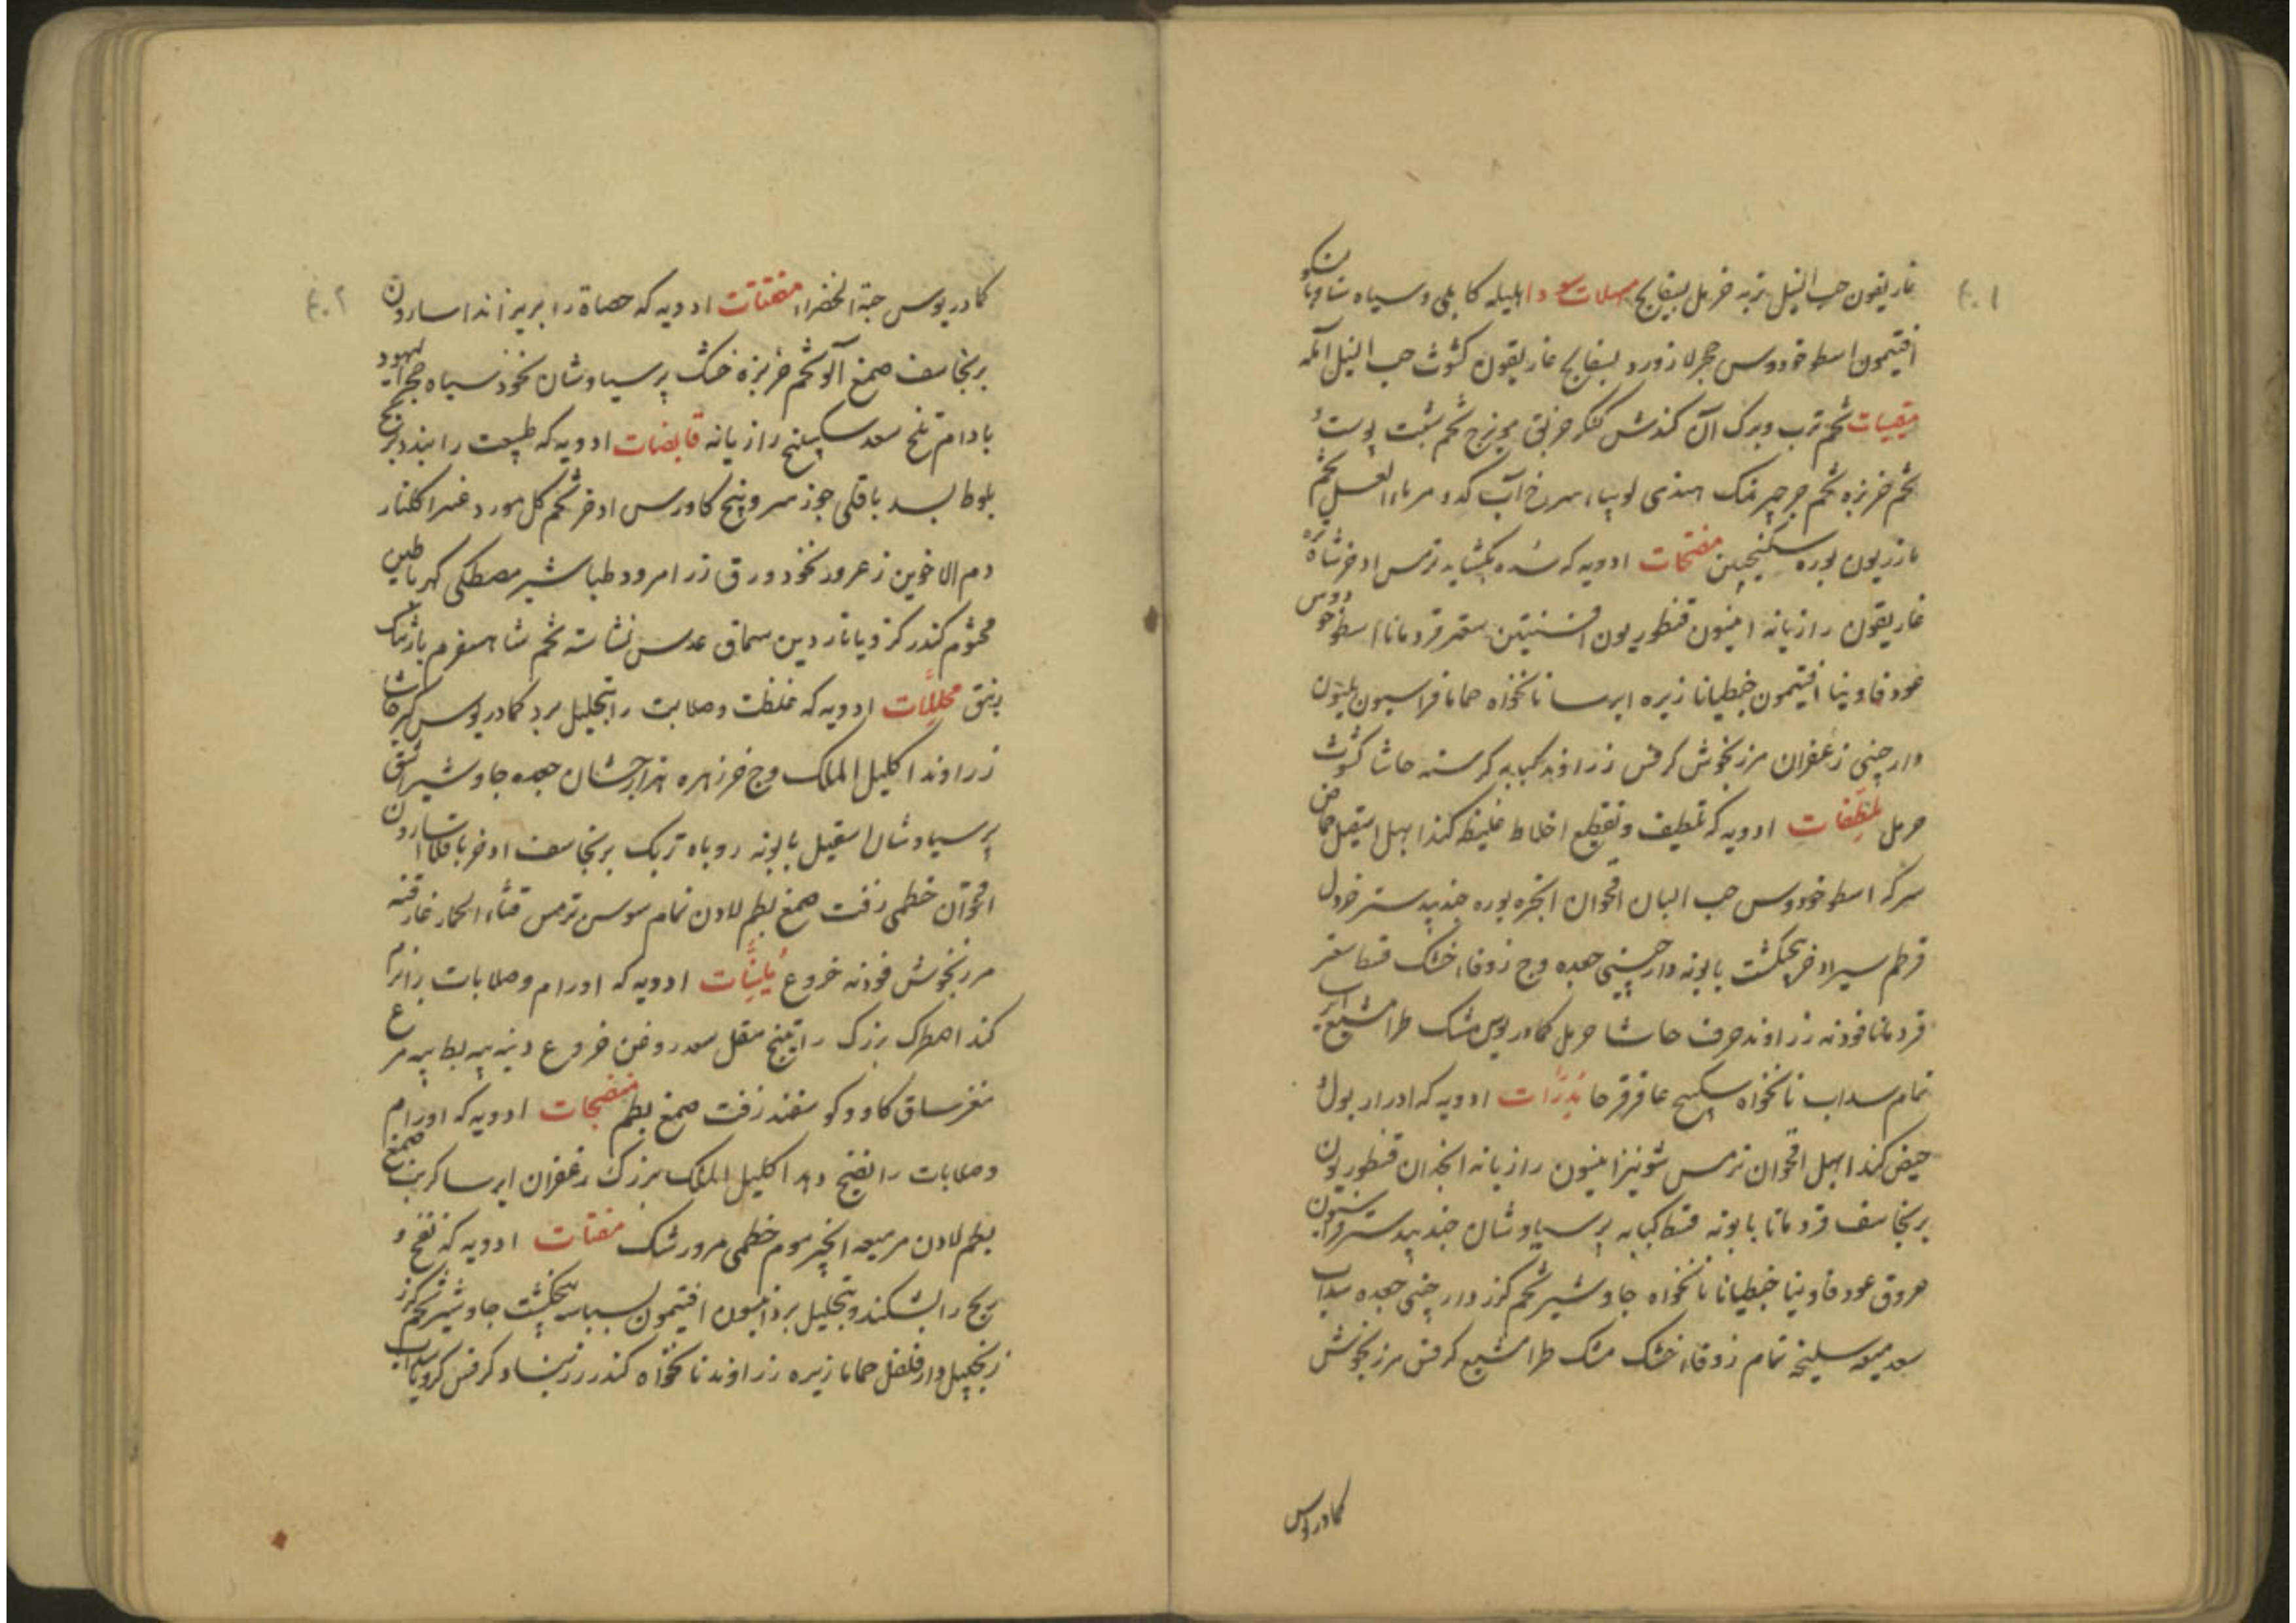 ۴۰۱
غاریقون حب النیل تربد خربل بسفایج مسهلات سودا هلیله کابلی و سیاه
افتیمون اسطوخودوس حجر لازورد بسفایج غاریقون کشوث حب النیل آمله
مقییات تخم ترب و برک آن کندش کنکر خربق تخم شبت پوست
تخم خربزه تخم جرجیر نمک هندی لوبیاء سرخ آب کدو مر ماء العسل تخم
مازریون بوره سکنجبین مفتحات ادویه که سده بکشاید ترمس اذخر
غاریقون رازیانه انیسون قنطوریون افسنتین سعتر قردمانا اسطوخودوس
عود فاوینا افتیمون جنطیانا زیره ایرسا نانخواه حماما فراسیون
دارچینی زعفران مرزنجوش کرفس زراوند کبابه کرسنه حاشا کشوث
حرمل ملطفات ادویه که تلطیف و تقطیع اخلاط غلیظ کند ابهل اسقیل حماض
سرکه اسطوخودوس حب البان اقحوان انجره بوره جندبیدستر خردل
قرطم سیر اذخر پنجنکشت بابونه دارچینی جعده وج زوفاء خشک قسط سعتر
قردمانا فوذنه زراوند حرف حاشا حرمل کمادریوس مشک طرامشیع
نمام سداب نانخواه سکبینج عاقرقرحا مدرات ادویه که ادرار بول و
حیض کند ابهل اقحوان ترمس شونیز انیسون رازیانه انجدان قنطوریون
برنجاسف قردمانا بابونه قسط کبابه پرسیاوشان جندبیدستر
عروق عود فاوینا جنطیانا نانخواه جاوشیر تخم کزر دارچینی جعده سداب
سعد میعه سلیخه نمام زوفاء خشک مشک طرامشیع کرفس مرزنجوش
کمادریوس
۴۰۲
کمادریوس حبة الخضراء مفتتات ادویه که حصاة را بریزاند اسارون
برنجاسف صمغ آلو تخم خربزه خشک پرسیاوشان نخود سیاه حجر الیهود
بادام تلخ سعد سکبینج رازیانه قابضات ادویه که طبیعت را ببندد
بلوط بسد باقلی جوز سرو پنج کاورس اذخر تخم کل مورد کلنار
دم الاخوین زعرور نخود ورق زر امرود طباشیر مصطکی کهربا طین
مختوم کندر کزویا ناردین سماق عدس نشاسته تخم شاهسفرم بارتنک
محللات ادویه که غلظت و صلابت را بتحلیل برد کمادریوس
زراوند اکلیل الملک وج خرزهره هزارجشان جعده جاوشیر اشق
پرسیاوشان اسقیل بابونه روباه تربک برنجاسف اذخر باقلا اسارون
اقحوان خطمی زفت صمغ بطم لادن نمام سوسن ترمس قثاء الحمار
مرزنجوش فوذنه خروع ملینات ادویه که اورام و صلابات را نرم
کند اصطرک بزرک راتینج مقل سعد روغن خروع دنبه پیه بط پیه مرغ
مغز ساق کاو و کوسفند زفت صمغ بطم منضجات ادویه که اورام
و صلابات را نضج دهد اکلیل الملک بزرک زعفران ایرسا کرنب صمغ
بطم لادن مر میعه انجیر موم خطمی مفشات ادویه که نفخ و
ریح را بشکند و بتحلیل برد انیسون افتیمون بسباسه پنجنکشت جاوشیر تخم کزر
زنجبیل دارفلفل حماما زیره زراوند نانخواه کندر زرنباد کرفس کرویا سداب